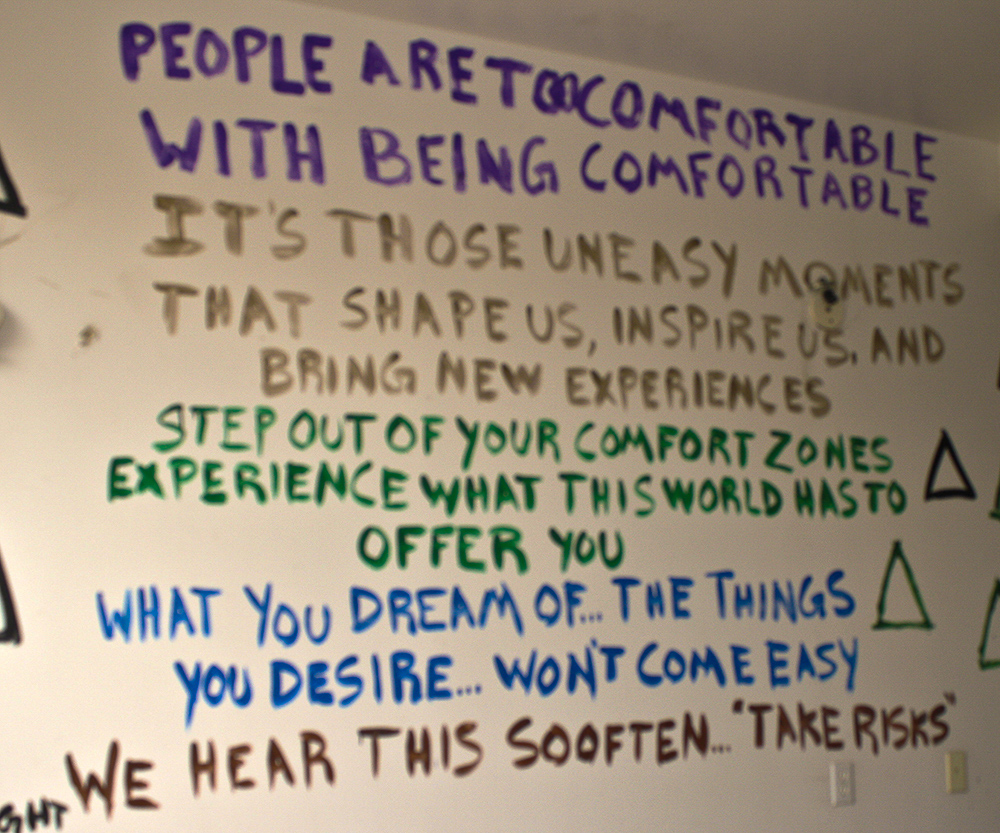 PEOPLE ARE TOO COMFORTABLE
WITH BEING COMFORTABLE
IT'S THOSE UNEASY MOMENTS
THAT SHAPE US, INSPIRE US, AND
BRING NEW EXPERIENCES
STEP OUT OF YOUR COMFORT ZONES
EXPERIENCE WHAT THIS WORLD HAS TO
OFFER YOU
WHAT YOU DREAM OF... THE THINGS
YOU DESIRE... WON'T COME EASY
WE HEAR THIS SO OFTEN... "TAKE RISKS"
GHT